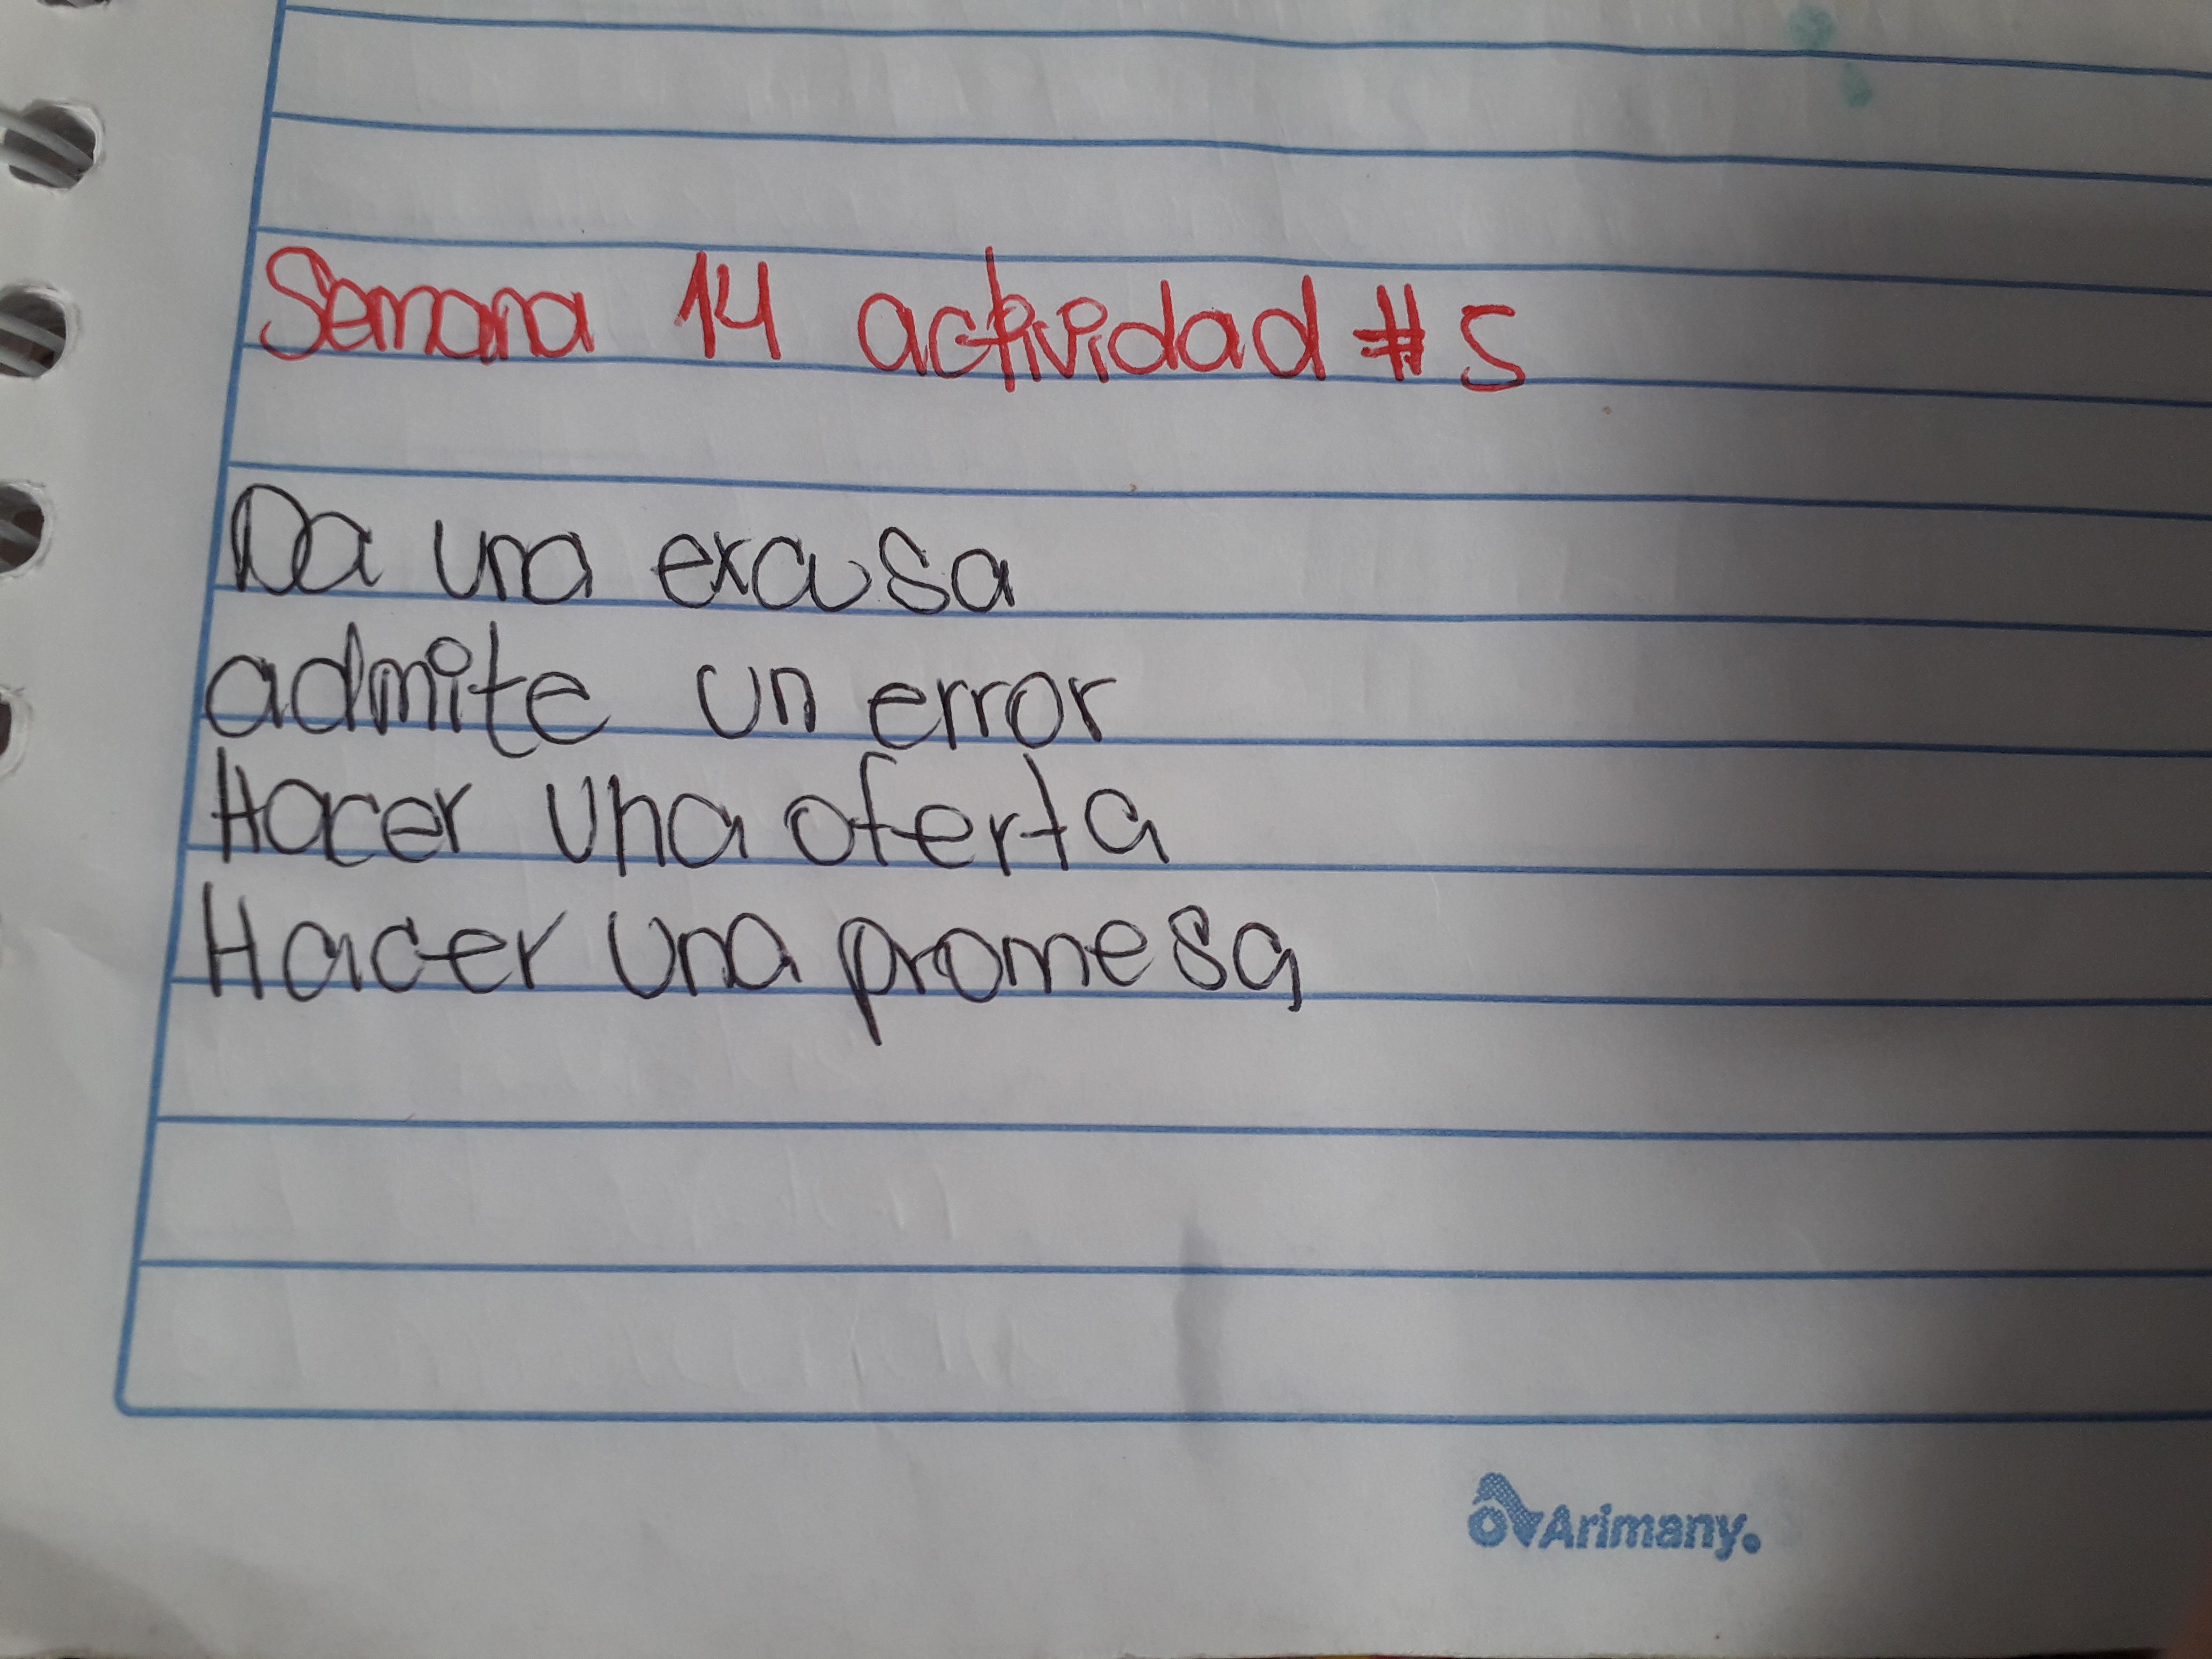 Semana 14 actividad # 5
Da una excusa
admite un error
Hacer una oferta
Hacer una promesa
Arimany.